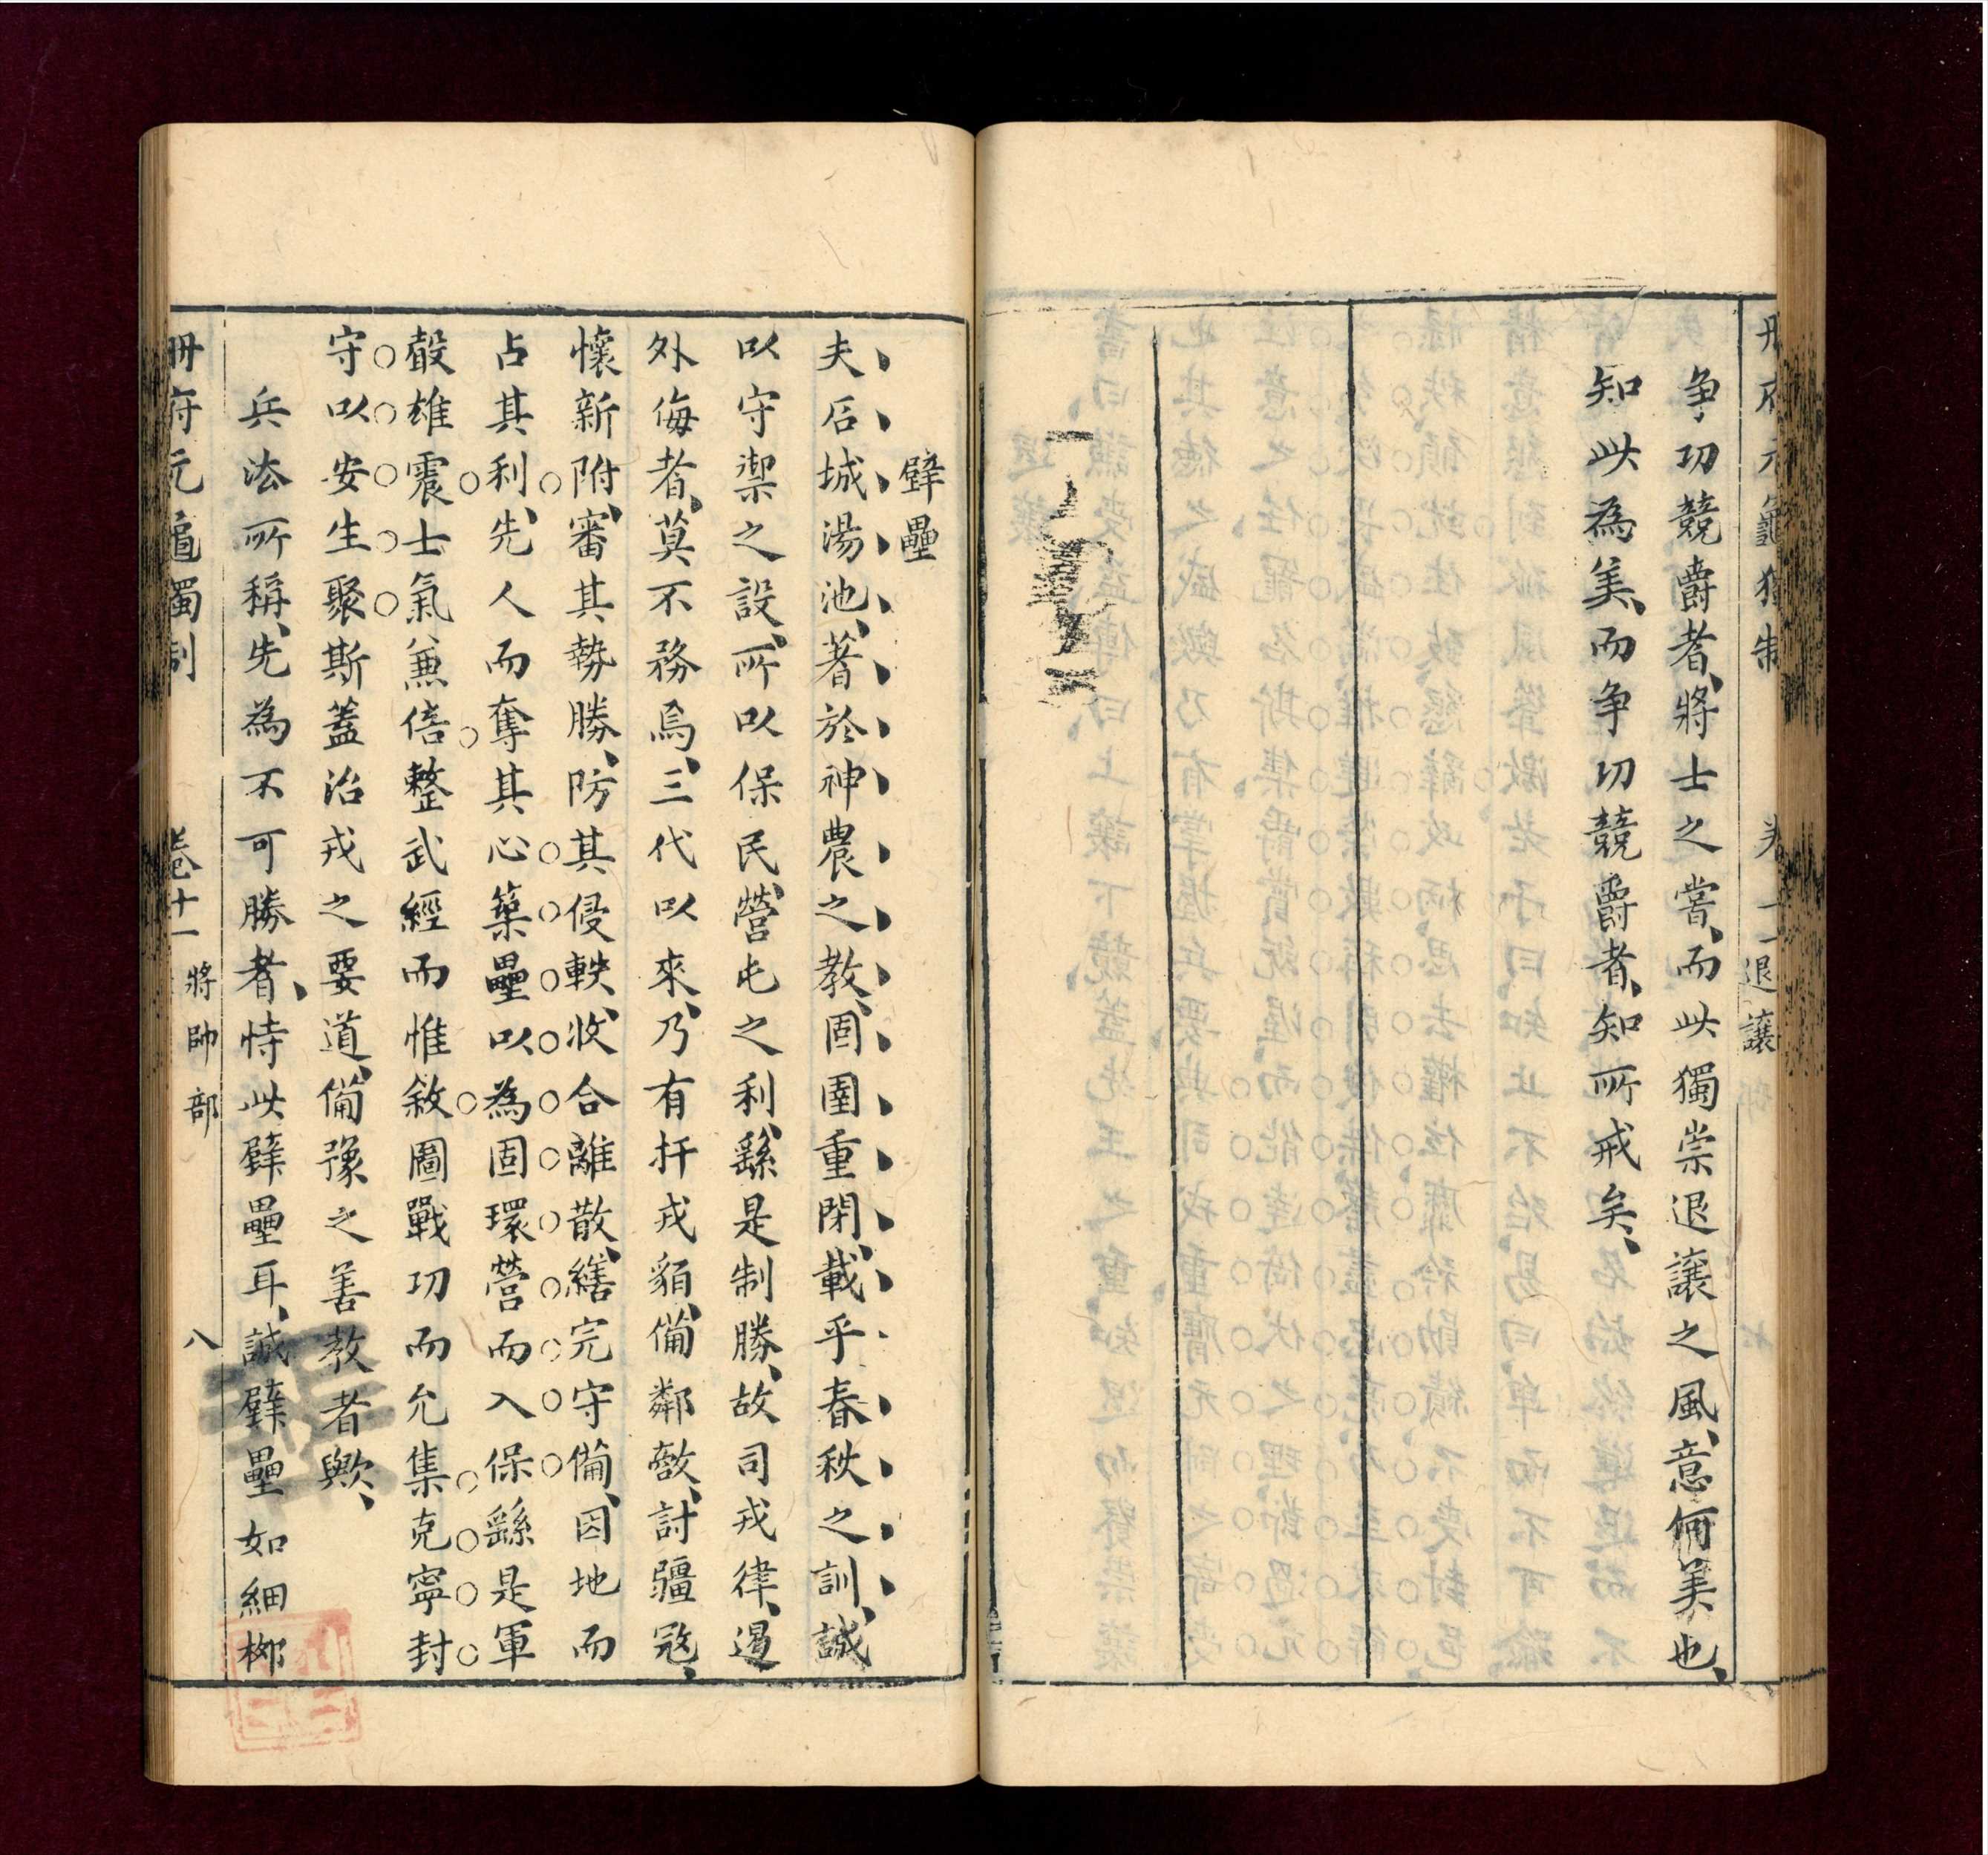 冊府元龜獨制 卷十一 退讓
争功競爵者、將士之嘗、而此獨崇退讓之風、意何美也、
知此為美、而争功競爵者、知所戒矣、
壁壘
夫石城湯池、著於神農之教、固圉重閉、載乎春秋之訓、誠
以守禦之設、所以保民、營屯之利、繇是制勝、故司戎律、遏
外侮者、莫不務焉、三代以來、乃有扞戎貊、備鄰敵、討疆寇、
懷新附、審其勢勝、防其侵軼、收合離散、繕完守備、因地而
占其利、先人而奪其心築壘以為固環營而入保繇是軍
聲雄震士氣兼倍整武經而惟敘圖戰功而允集克寧封
守以安生聚斯蓋治戎之要道、備豫之善教者歟、
兵法所稱、先為不可勝者、恃此壁壘耳、誠壁壘如細柳
冊府元龜獨制 卷十一 將帥部 八